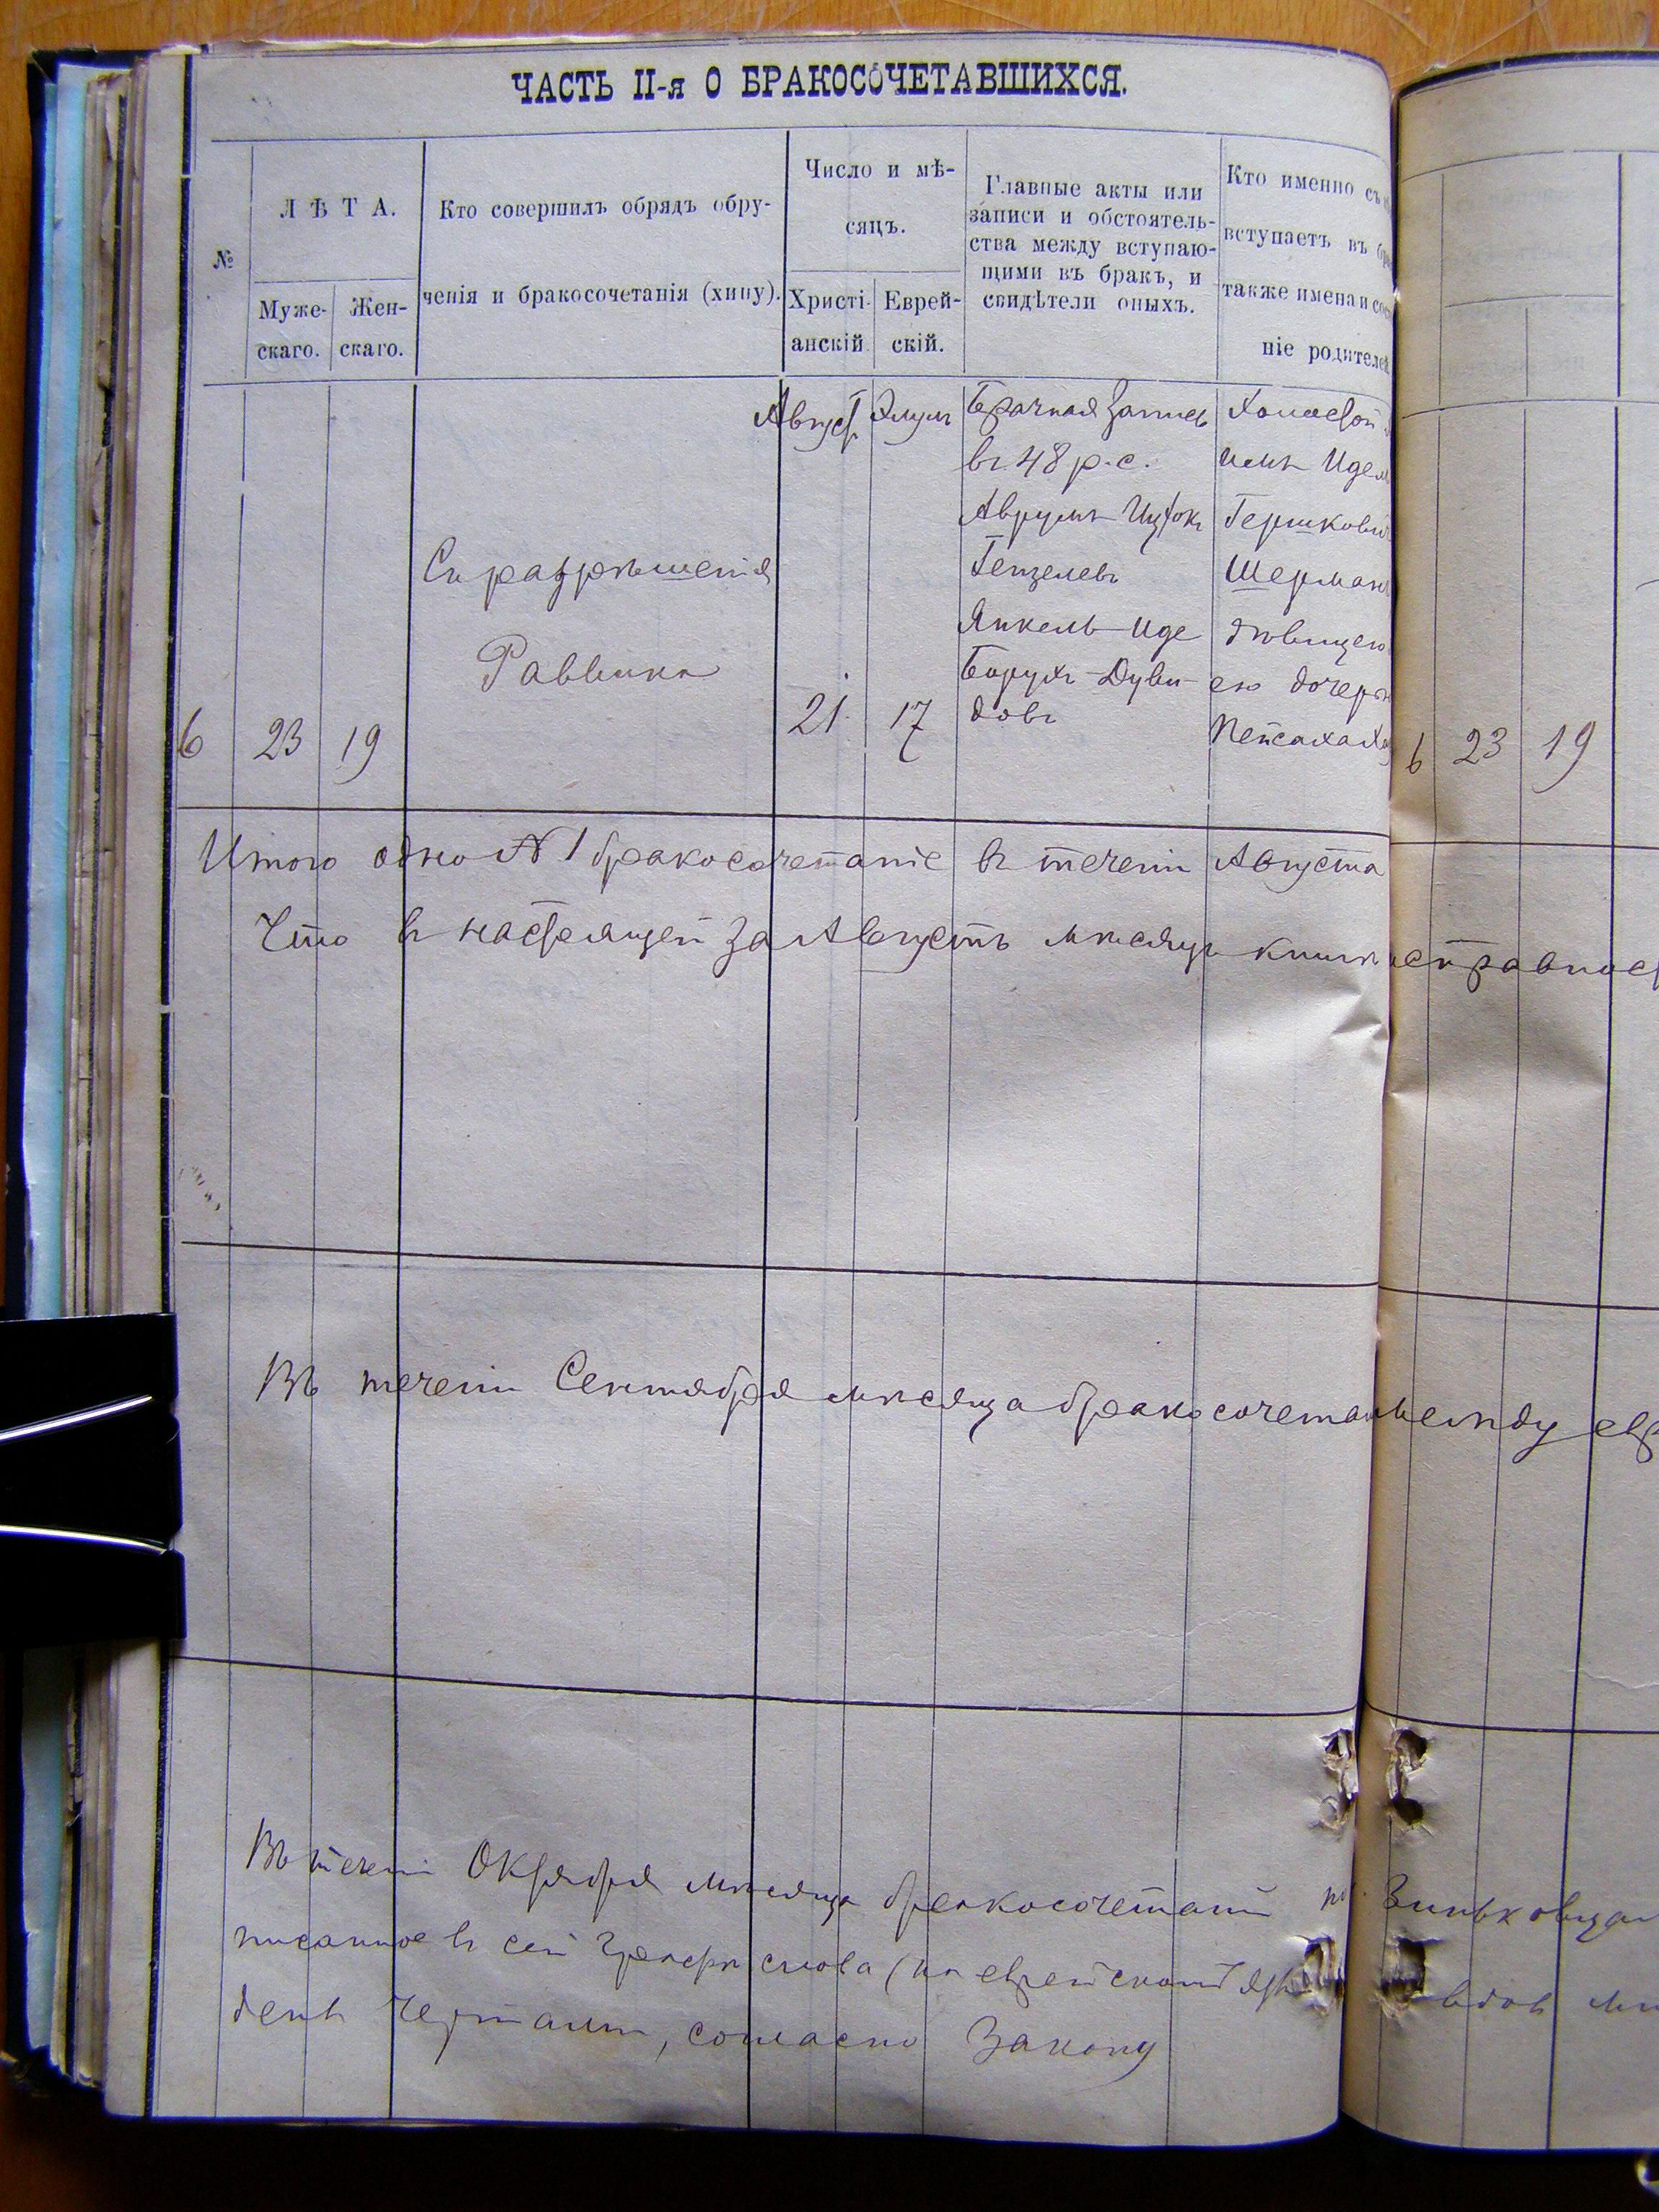 ЧАСТЬ II-я О БРАКОСОЧЕТАВШИХСЯ.
№
ЛѢТА.
Муже-
скаго.
Жен-
скаго.
Кто совершилъ обрядъ обру-
ченія и бракосочетанія (хипу).
Число и мѣ-
сяцъ.
Христі-
анскій
Еврей-
скій.
Главные акты или
записи и обстоятель-
ства между вступаю-
щими въ бракъ, и
свидѣтели оныхъ.
Кто именно съ
вступаетъ въ
также имена и сос
ніе родителей
6
23
19
Съ разрѣшенія
Раввина
Август
21
Элулъ
17
Брачная запись
въ 48 р. с.
Аврумъ Ицхокъ
Гензелевъ
Янкель Иде
Борухъ Дуви-
довъ
Холостой
Гершкови
Шерман
дѣвицею
ею дочерь
Пейсаха
6
23
19
Итого одно № 1 бракосочетаніе въ теченіи Августа
Что въ настоящей за Августъ мѣсяцъ книгѣ
Въ теченіи Сентября мѣсяца бракосочетан между евр
Въ теченіи Октября мѣсяца бракосочетаній
писанное въ сей слова (на еврейскомъ
день чертамъ, согласно Закону